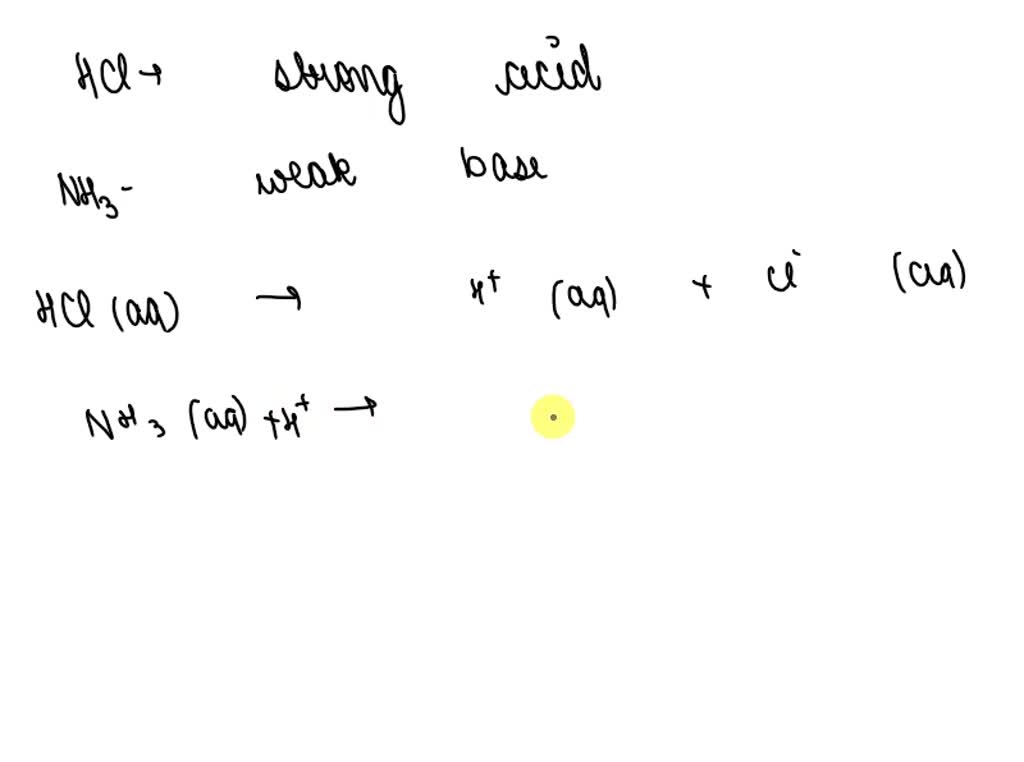 HCl → strong acid
NH3 - weak base
HCl (aq) → H+ (aq) + Cl- (aq)
NH3 (aq) + H+ →